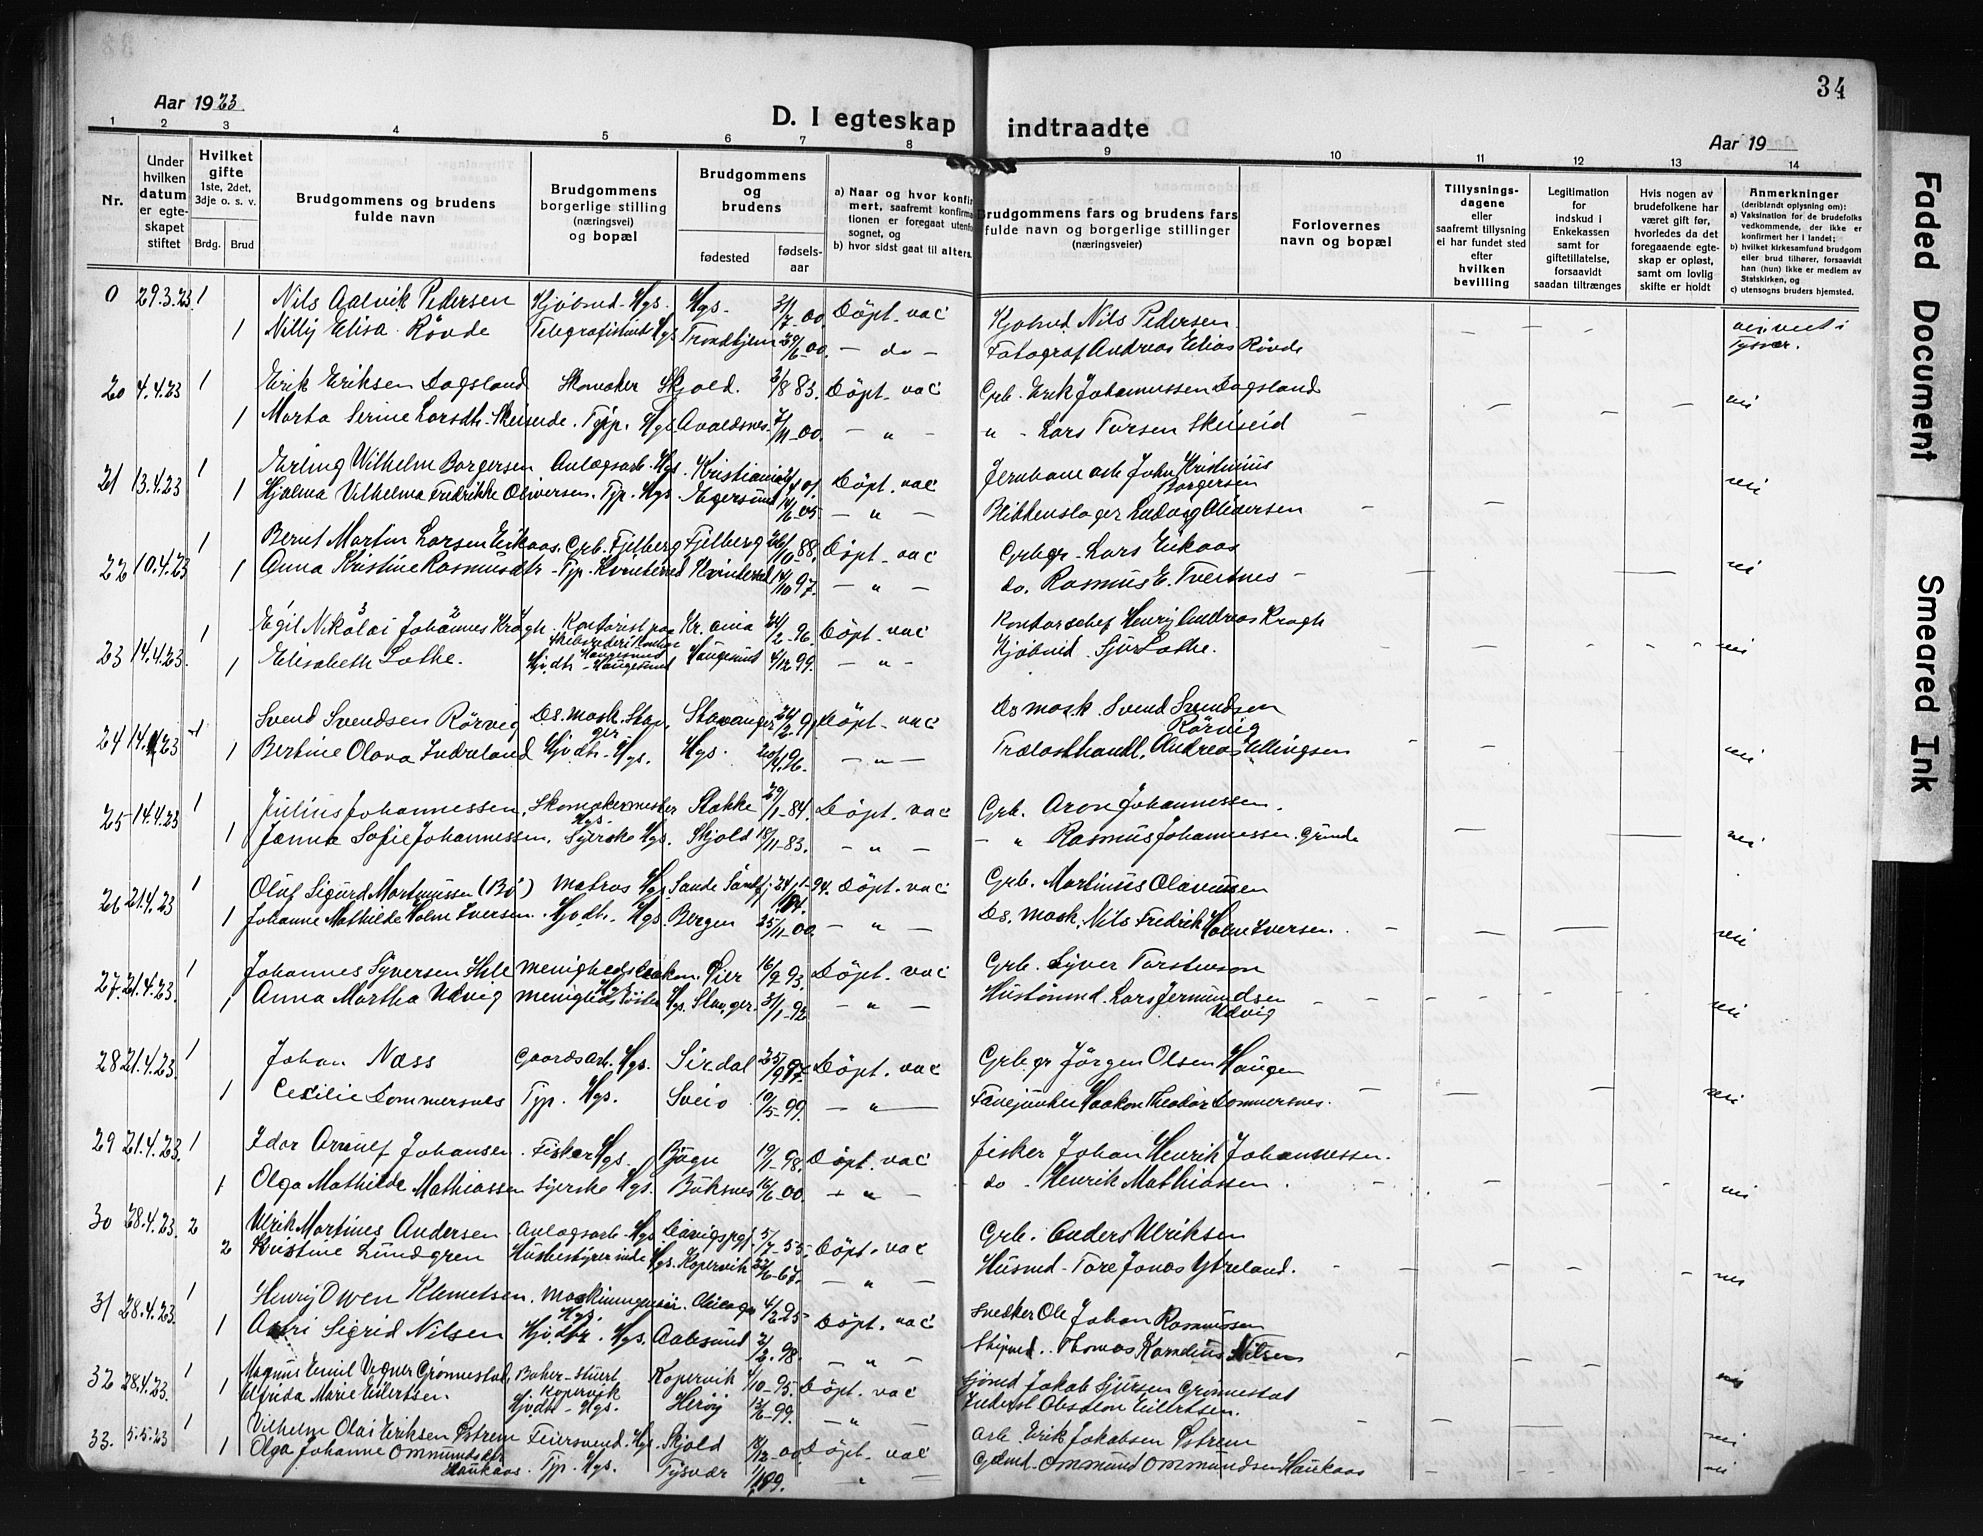 34
Aar 1923
D. I egteskap indtraadte
Aar 19
1 2 3 4 5 6 7 8 9 10 11 12 13 14
Nr.
Under hvilken datum er egteskapet stiftet
Hvilket gifte 1ste, 2det, 3dje o. s. v.
Brdg. Brud
Brudgommens og brudens fulde navn
Brudgommens borgerlige stilling (næringsvei) og bopæl
Brudgommens og brudens
fødested fødselsaar
a) Naar og hvor konfir
mert, saafremt konfirma
tionen er foregaat utenfo
sognet, og
b) hvor sidst gaat til alters.
Brudgommens fars og brudens fars fulde navn og borgerlige stillinger (næringsveier)
Forlovernes navn og bopæl
Tillysningsdagene eller saafremt tillysning ei har fundet sted efter hvilken bevilling
Legitimation for indskud i Enkekassen samt for giftetillatelse, forsaavidt saadan tiltrænges
Hvis nogen av brudefolkene har været gift før, hvorledes da det foregaaende egteskap er opløst, samt om lovlig skifte er holdt
Anmerkninger (deriblandt oplysning om):
a) Vaksination for de brudefolks vedkommende, der ikke er konfirmert her i landet;
b) hvilket kirkesamfund brudgom eller brud tilhører, forsaavidt han (hun) ikke er medlem av Statskirken, og
c) utensogns bruders hjemsted.
0 29.3.23 1 Nils Aalvik Pedersen Kjøbmd. Hgs. Hgs. 7-00. Döpt. vac Kjøbmd Nils Pedersen
1 Nilly Elisa Rövde Telegrafistinde Hgs Trondhjem 29/6-00. - do - Fotograf Andreas Elias Rövde Tysvær.
20 4.4.23 1 Erik Eriksen Dagsland Skomaker Skjold. /8 83. Döpt. vac Grb. Erik Johannessen Dagsland nei
1 Marta Serine Larsdtr. Skeiseide. Typ. Hgs Avaldsnes /11-00. - " - " - Lars Skeiseid
21 13.4.23 1 Erling Wilhelm Borgersen Anlægsarb. Hgs. Kristiania Döpt. vac Jernbane arb John Kristinius Borgersen nei
1 Hjalma Vilhelma Fredrikke Oliversen. Typ. Hgs. Egersund /6-05 - " - Blikkenslager Ludvig Olidersen
22 10.4.23 1 Bernt Martin Larsen Eikaas. Grb. Fjelberg Fjelberg 26/10-88. Döpt. vac Grbgr. Lars Eikaas
1 Anna Kristine Rasmusdtr - Typ. Kvinherred Kvinherred 14/10 97. - " - do. Rasmus E. Tveitnes - nei
23 14.4.23 1 Egil Nikolai Johannes Krogh. Kontorist paa Skibsrederi Kontor Haugesund Kr. ania 24/2-96. Döpt. vac Kontorschef Henry Andreas Krogh
1 Elisabeth Lothe. Hjvdtr. - Haugesund Haugesund 4/12 99. - " - Kjøbmd. Sjur Lothe. nei
24 14.4.23 1 Svend Svendsen Rörvig Ds. mask. Stav ger Stavanger 24/2-9 Döpt. vac Ds mask. Svend Svendsen Rörvig
1 Bertine Olava Indreland Hjvdtr. - Hgs. Hgs. 20/4.96. - " - Trælasthandl. Andreas Ellingsen nei
25 14.4.23 1 Julius Johannessen. Skomakermester Hgs. Stakke 29/1-84. Döpt. vac Grb. Aron Johannessen.
1 Janna Sofie Johannessen. Syerske Hgs. Skjold 18/11-83. - " - - " Rasmus Johannessen. Grinde nei
26 21.4.23 1 Oluf Sigurd Martinussen (Bö) Matros Hgs. Sande Söndfj. 24/ -94. Döpt. vac Grb. Martinus Olavussen
1 Johanne Mathilde Holm Iversen. Hjvdtr. Hgs. Bergen 25/11-00. - " - Ds. mask. Nils Fredrik Holm Iversen. nei
27. 21.4.23. 1 Johannes Syversen Hole Menighedsdiakon. Hgs Öier 16/9 93. Döpt. vac Grb. Syver Torstenson
1 Anna Martha Udvig Menighedssöster Hgs. Stav.ger. 3/1-92 - " - Hustømmd. Lars Jermundsen Udvig nei
28 21.4.23. 1 Johan Næss Gaardsarb. Hgs. Sirdal 25/9 97. Döpt. vac Grbgr Jörgen Olsen Haugen
1 Cecilie Dommersnes Typ. Hgs. Sveio 19/5-99. - " - Fanejunker Haakon Theodor Dommersnes. nei
29 21.4.23. 1 Idar Arnulf Johansen. Fisker Hgs. 19/1-98. Döpt. vac fisker Johan Henrik Johannessen.
1 Olga Mathilde Mathiassen Syerske Hgs. Buksnes 16/6-00. - " - do - Henrik Mathiassen. nei
30 28.4.23. 2 Ulrik Martines Andersen Anlægsarb. Hgs Davigs pgj. 5/7-55. Döpt. vac Grb. Anders Ulriksen
2 Kristine Lundgren Husbestyrerinde Hgs. Kopervik /6-67. - " - Husmd. Tore Jonas Ytreland. nei
31 28.4.23. 1 Henry Owen Klemetsen. Maskiningeniör. Hgs. Chicago 4/2 95 Döpt. vac Snedker Ole Johan Rasmussen
1 Astri Sigrid Nilsen Hjvdtr. Hgs. Aalesund 2/2. 98. - " - Skipsmd. Thomas Kornelius Nilsen
32 28.4.23. 1 Magnus Emil Wegner Grönnestad. Baker-Stuert Kopervik Kopervik 4/10-95. Döpt. vac Sjömd Jakob Sjursen Grönnestad nei
1 Alfrida Marie Eilertsen Hjvdtr. - Hgs. Heröy 13/6-99. - " - Absalon Eilertsen.
33. 5.5.23 1 Vilhelm Olai Eriksen Östrem Feiersvend. Hgs. Skjold 18/12-00. Döpt. vac Arb. Erik Jakobsen Östrem nei
1 Olga Johanne Ommundsdtr Haukaas. Typ. Hgs. Tysvær 1/1 99. " - Gdmd. Ommund Ommundsen Haukaas nei
Faded Document
Smeared Ink